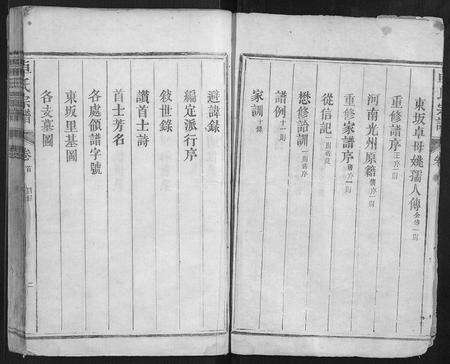 東坂卓母姚孺人傳
重修譜序
河南光州原籍
重修家譜序
從信記
懋修詒訓
譜例 十一則
家訓 十條
避諱錄
編定派行序
敍世錄
讚首士詩
首士芳名
各處領譜字號
東坂里基圖
各支墓圖
氏宗譜 卷首 目錄 二